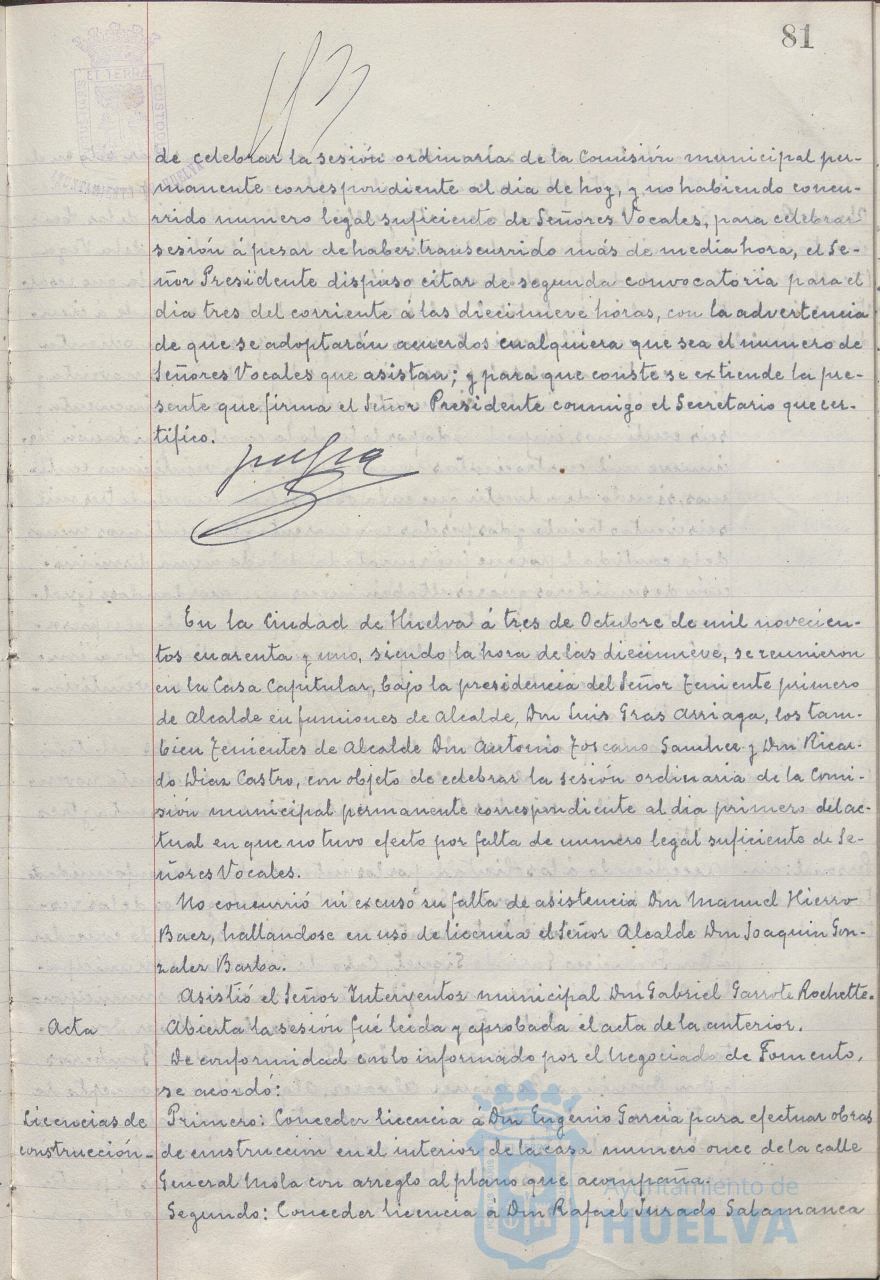 81
de celebrar la sesión ordinaria de la Comisión municipal per-
manente correspondiente al dia de hoy, y no habiendo concu-
rrido numero legal suficiente de Señores Vocales, para celebrar
sesión á pesar de haber transcurrido más de media hora, el Se-
ñor Presidente dispuso citar de segunda convocatoria para el
dia tres del corriente á las diecinueve horas, con la advertencia
de que se adoptarán acuerdos cualquiera que sea el numero de
Señores Vocales que asistan; y para que conste se extiende la pre-
sente que firma el Señor Presidente conmigo el Secretario que cer-
tifico.
En la Ciudad de Huelva á tres de Octubre de mil novecien-
tos cuarenta y uno, siendo la hora de las diecinueve, se reunieron
en la Casa Capitular, bajo la presidencia del Señor Teniente primero
de Alcalde en funciones de Alcalde, Don Luis Gras Arriaga, los tam-
bien Tenientes de Alcalde Don Antonio Toscano Sanchez y Don Ricar-
do Diaz Castro, con objeto de celebrar la sesión ordinaria de la Comi-
sión municipal permanente correspondiente al dia primero del ac-
tual en que no tuvo efecto por falta de numero legal suficiente de Se-
ñores Vocales.
No concurrió ni excusó su falta de asistencia Don Manuel Hierro
Baez, hallandose en uso de licencia el Señor Alcalde Don Joaquin Gon-
zalez Barba.
Asistió el Señor Interventor municipal Don Gabriel Garrote Rochette.
Acta Abierta la sesión fué leida y aprobada el acta de la anterior.
De conformidad con lo informado por el Negociado de Fomento,
se acordó:
Licencias de Primero: Conceder licencia á Don Eugenio Garcia para efectuar obras
construcción.- de construccion en el interior de la casa numero once de la calle
General Mola con arreglo al plano que acompaña.
Segundo: Conceder licencia á Don Rafael Jurado Salamanca
Ayuntamiento de
HUELVA